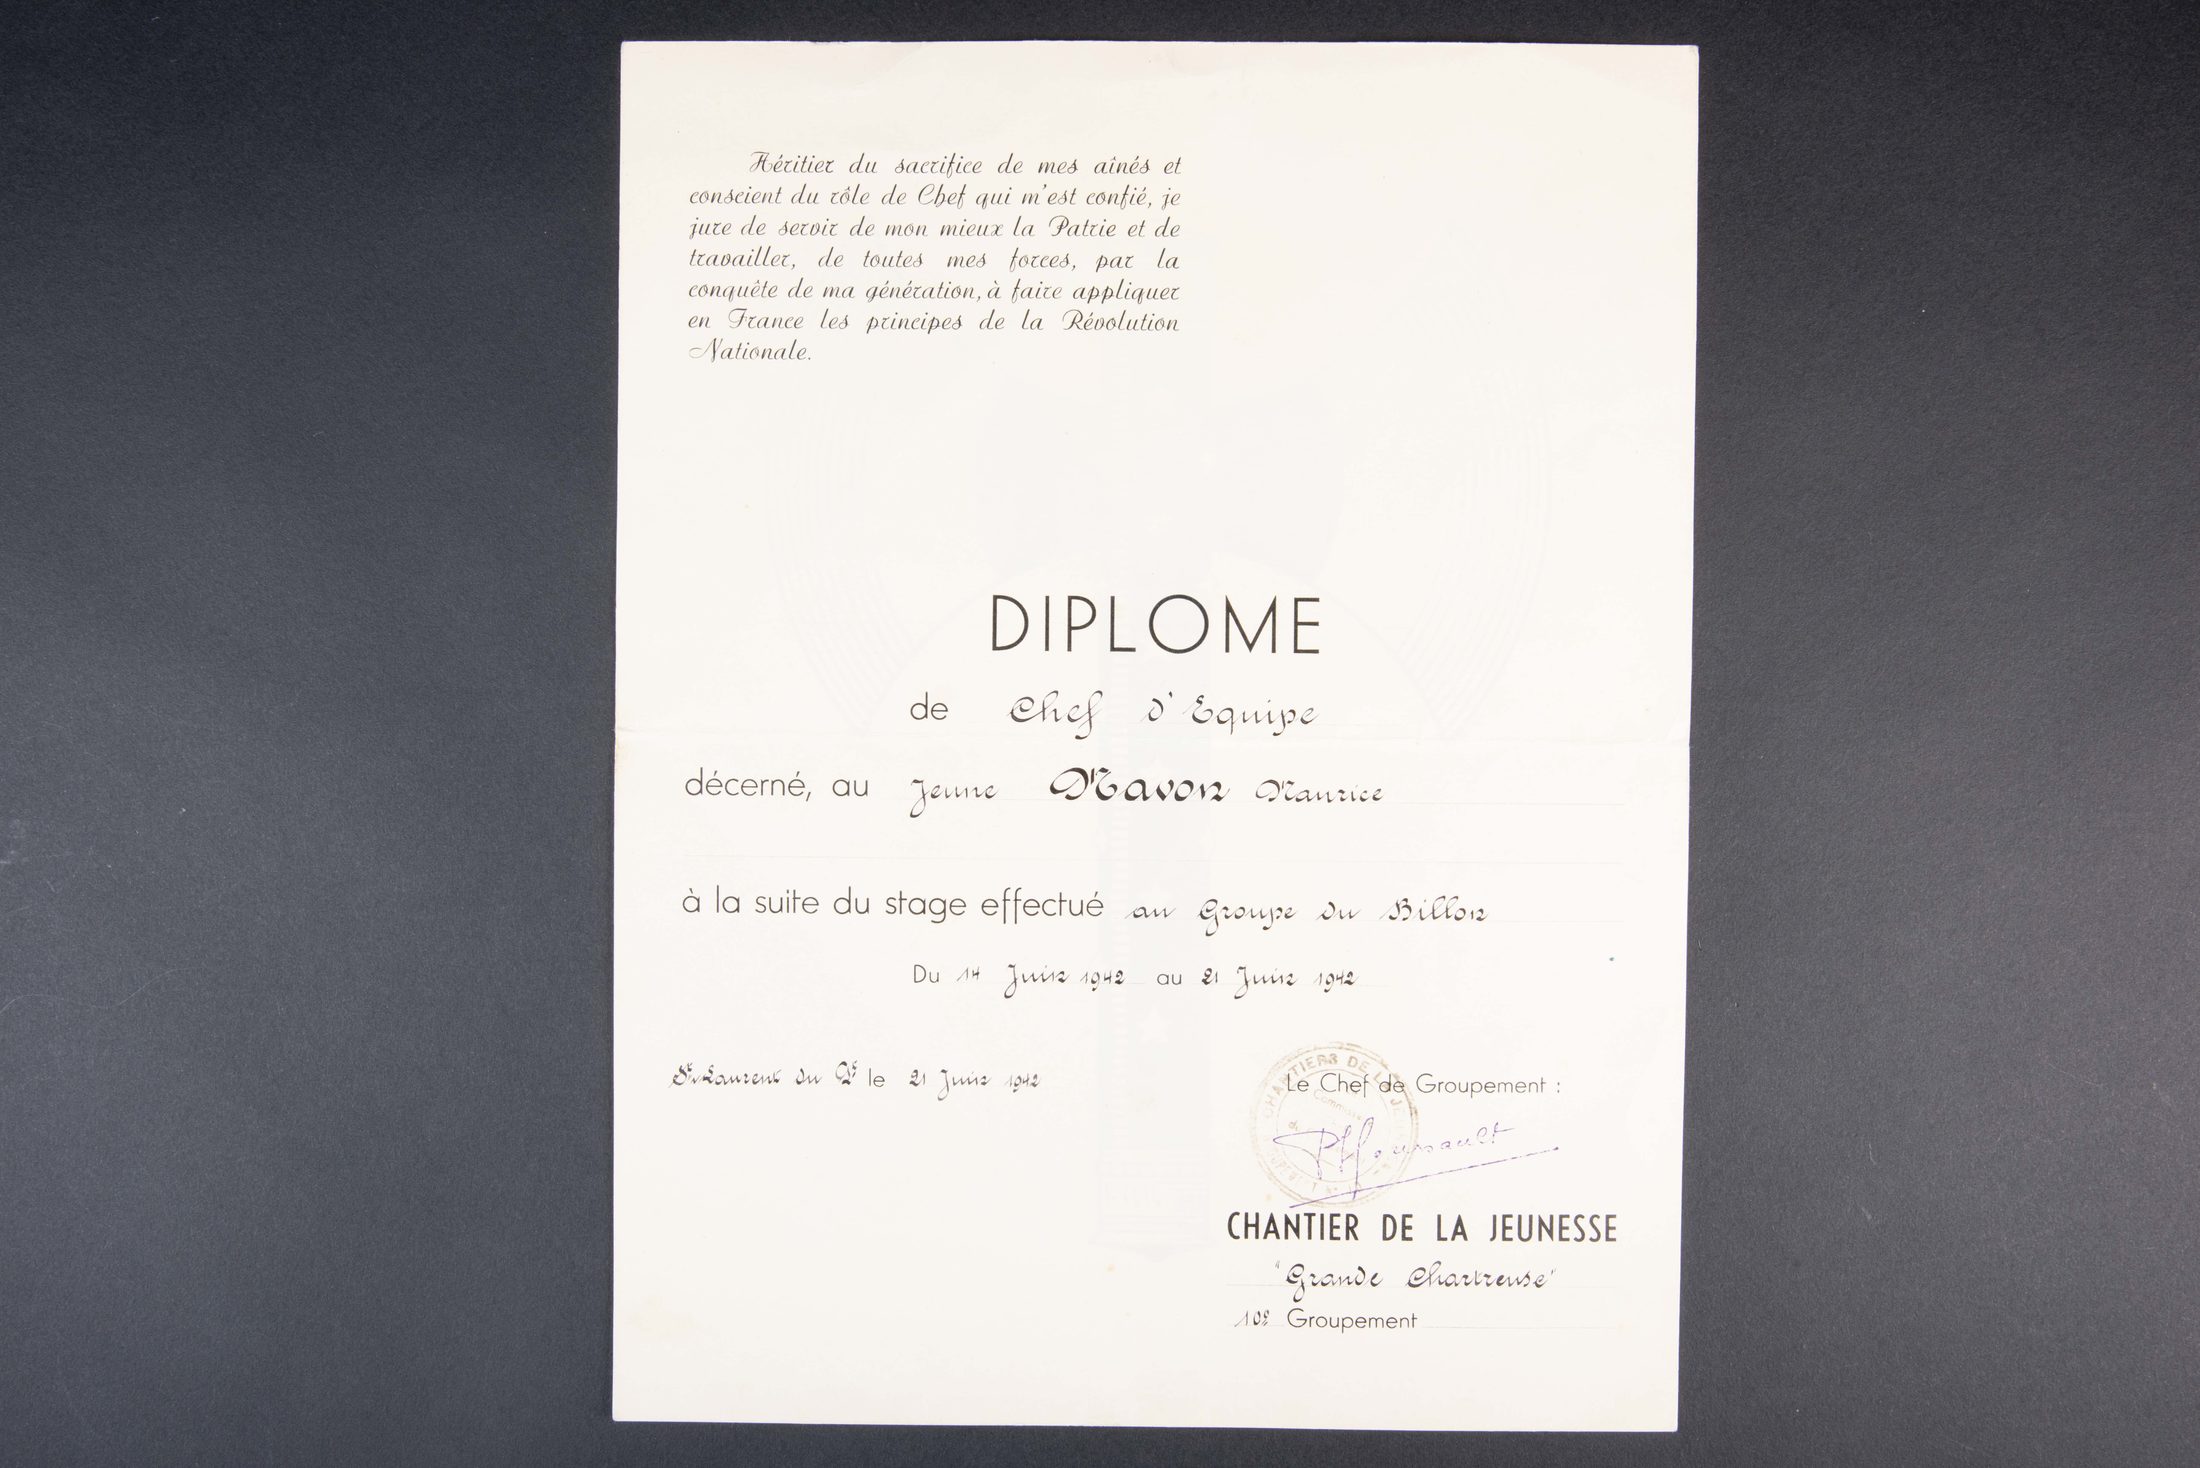 Héritier du sacrifice de mes aînés et
conscient du rôle de Chef qui m'est confié, je
jure de servir de mon mieux la Patrie et de
travailler, de toutes mes forces, par la
conquête de ma génération, à faire appliquer
en France les principes de la Révolution
Nationale.
DIPLOME
de Chef d'Equipe
décerné, au Jeune Mavon Maurice
à la suite du stage effectué au Groupe du Billon
Du 14 Juin 1942 au 21 Juin 1942
St Laurent du Pt le 21 Juin 1942
CHANTIERS DE LA JE
Le Chef de Groupement :
CHANTIER DE LA JEUNESSE
"Grande Chartreuse"
10e Groupement